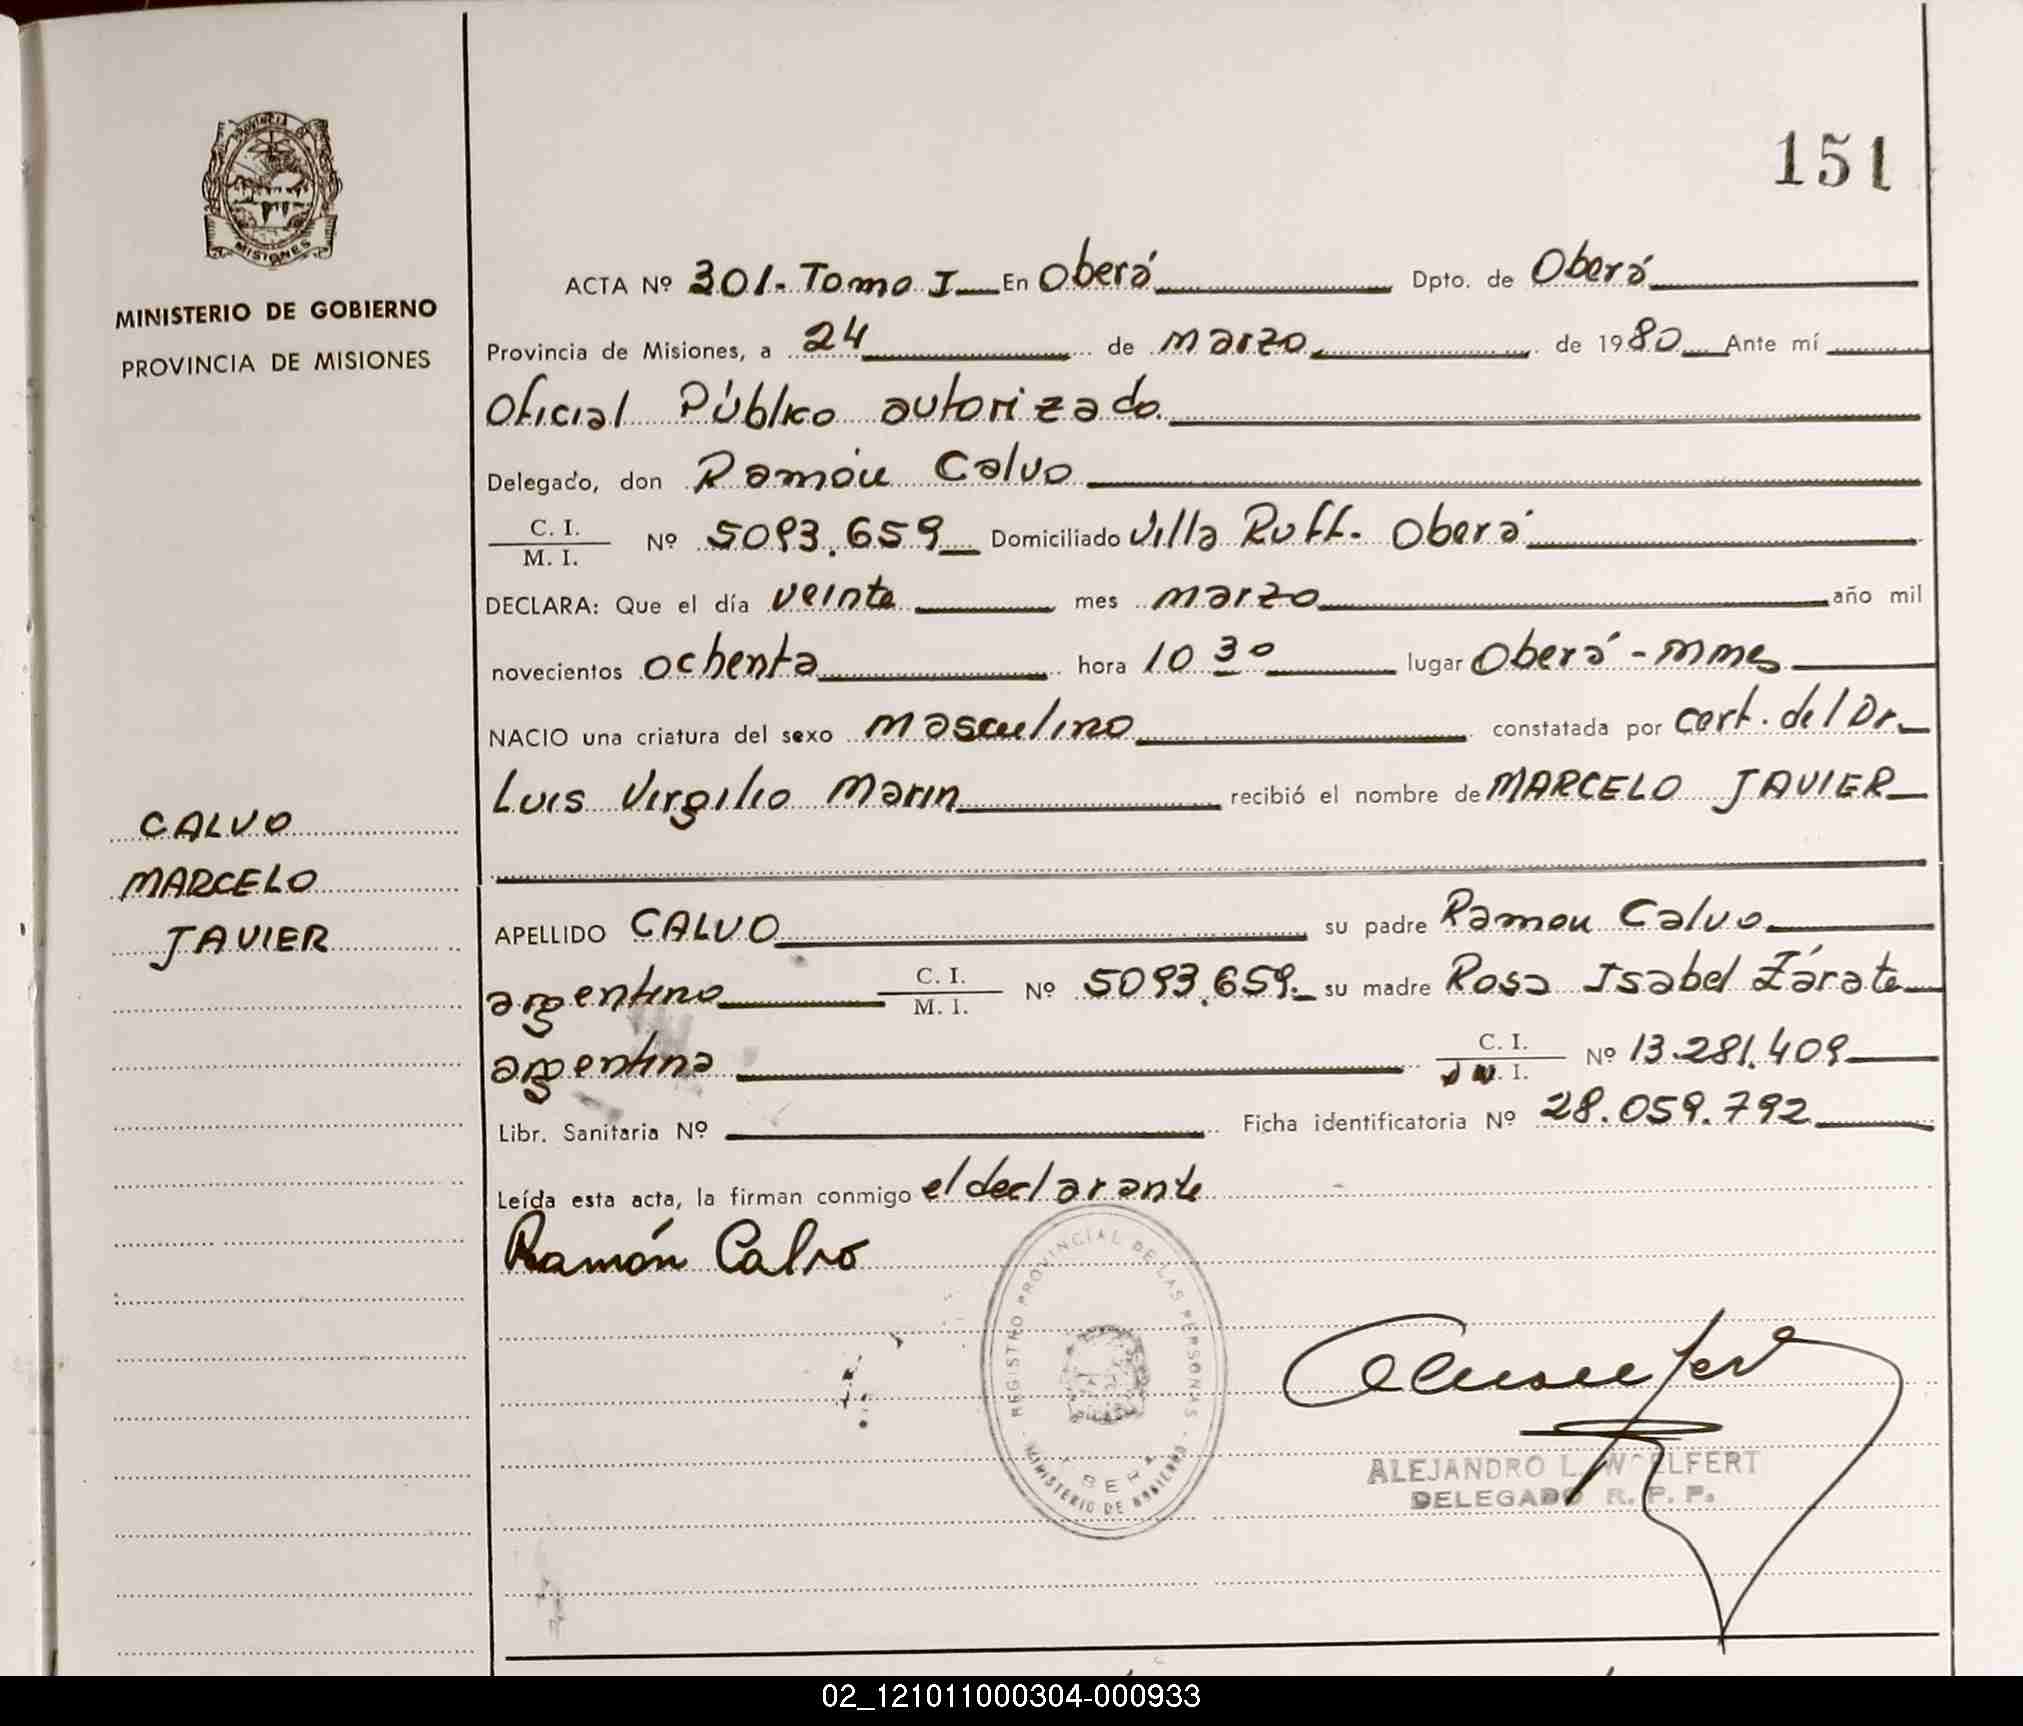 PROVINCIA DE
MISIONES
MINISTERIO DE GOBIERNO
PROVINCIA DE MISIONES
CALVO
MARCELO
JAVIER
151
ACTA Nº 301.- Tomo I En Oberá Dpto. de Oberá
Provincia de Misiones, a 24 de marzo de 1980 Ante mí
Oficial Público autorizado.
Delegado, don Ramón Calvo
C. I.
M. I. Nº 5093.659 Domiciliado Villa Ruff. Oberá
DECLARA: Que el día veinte mes marzo año mil
novecientos ochenta hora 10 30 lugar Oberá - Mnes
NACIO una criatura del sexo masculino constatada por cert. del Dr.
Luis Virgilio Marin recibió el nombre de MARCELO JAVIER
APELLIDO CALVO su padre Ramon Calvo
argentino C. I.
M. I. Nº 5093.659. su madre Rosa Isabel Zárate
argentina C. I.
I. Nº 13.281.409
Libr. Sanitaria Nº Ficha identificatoria Nº 28.059.792
Leída esta acta, la firman conmigo el declarante
Ramón Calvo
REGISTRO PROVINCIAL DE LAS PERSONAS
MINISTERIO DE GOBIERNO
ALEJANDRO L. WOELFERT
DELEGADO R. P. P.
02_121011000304-000933